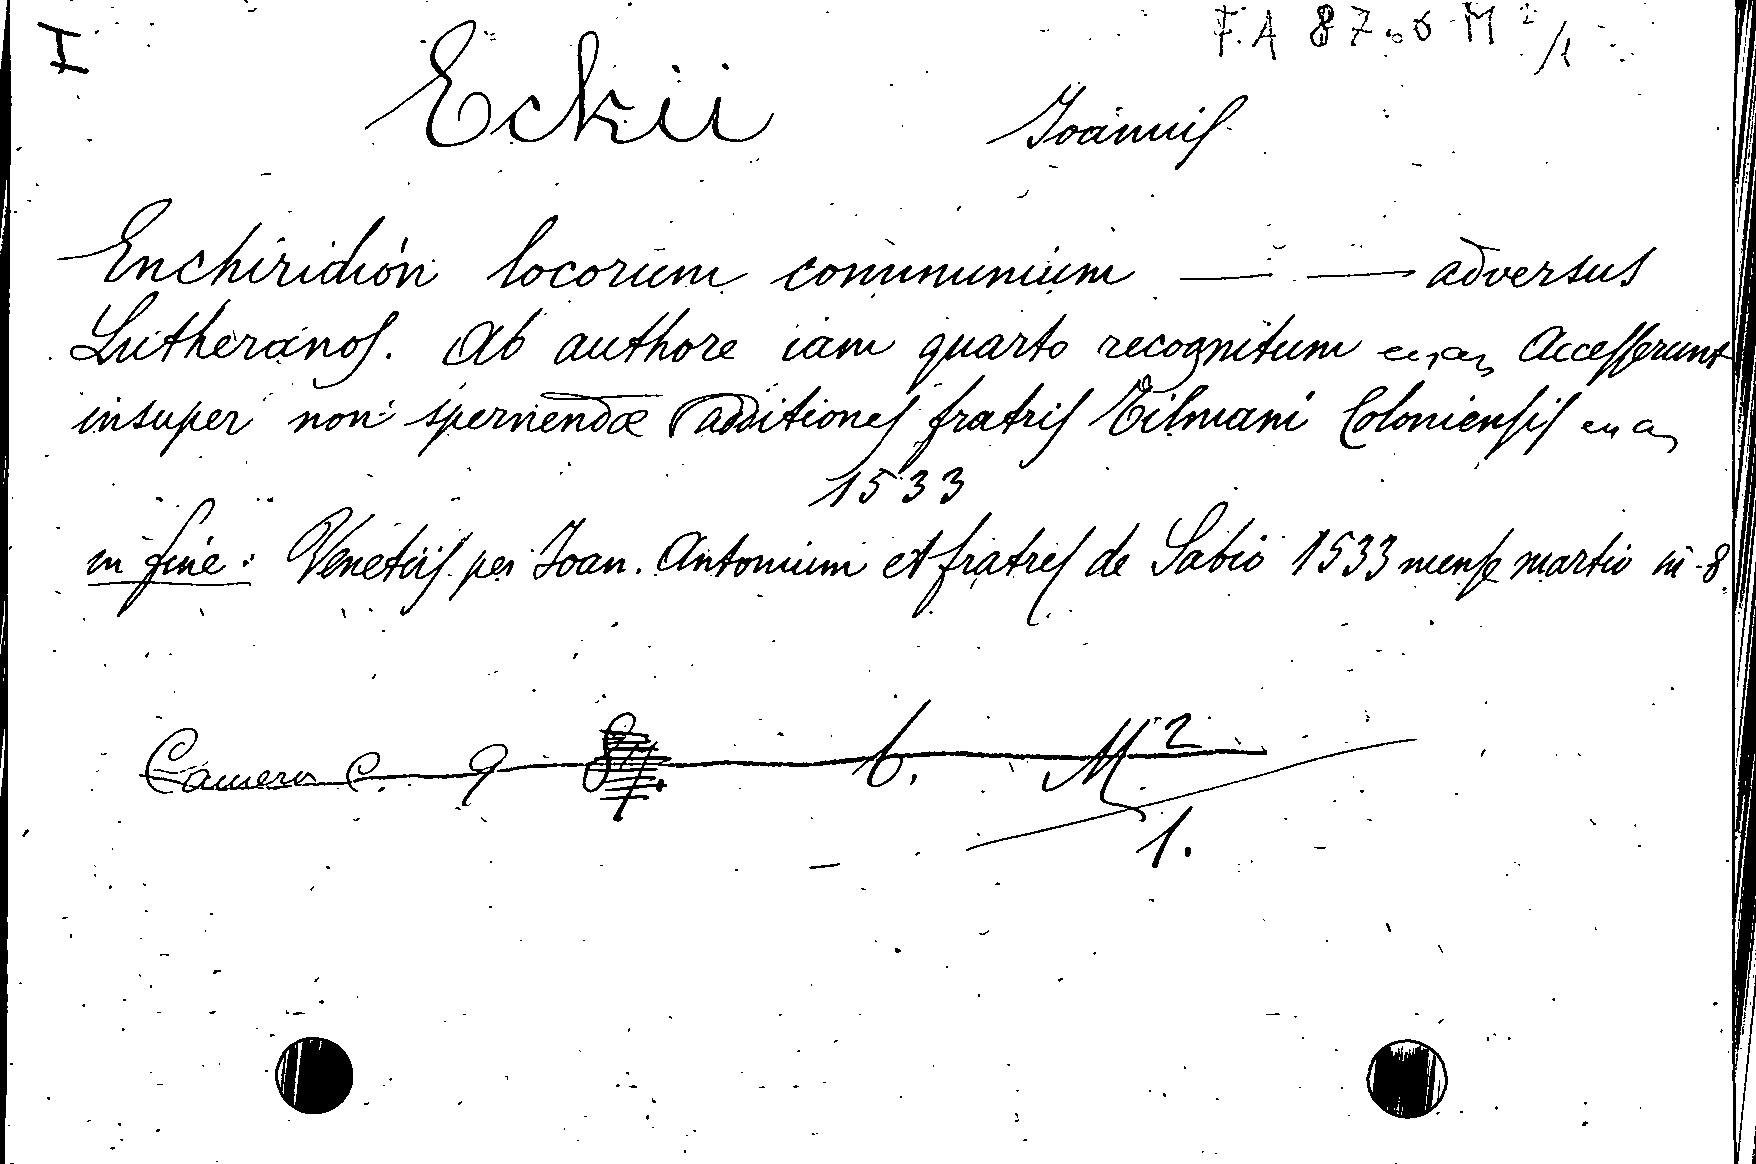 I
F. A 87.6 M²/1
Eckii Joannis
Enchiridion locorum communium — — adversus
Lutheranos. Ab authore iam quarto recognitum Accesserunt
insuper non spernendæ additiones fratris Tilmani Coloniensis
1533
in fine: Venetiis per Joan. Antonium et fratres de Sabio 1533 mense martio in-8
Camera C. 9 87. 6. M²
1.